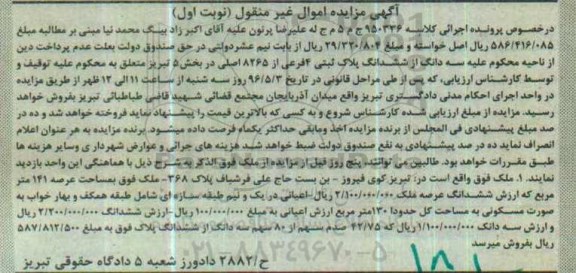 آگهی مزایده اموال غیر منقول (نوبت اول)
درخصوص پرونده اجرائی کلاسه ۹۵۰۳۳۶ ج م ۵ م ج له علیرضا پرنون علیه آقای اکبر زاد بینگ محمد نیا مبنی بر مطالبه مبلغ
۵۸۶/۴۱۶/۰۸۵ ریال اصل خواسته و مبلغ ۲۹/۳۳۰/۸۰۴ ریال از بابت نیم عشردولتی در حق صندوق دولت بعلت عدم پرداخت دین
از ناحیه محکوم علیه سه دانگ از ششدانگ پلاک ثبتی ۲فرعی از ۸۲۶۵ اصلی در بخش ۵ تبریز متعلق به محکوم علیه توقیف و
توسط کارشناس ارزیابی، که پس از طی مراحل قانونی در تاریخ ۹۶/۵/۳ روز سه شنبه از ساعت ۱۱ الی ۱۲ ظهر از طریق مزایده
در واحد اجرای احکام مدنی دادگستری تبریز واقع میدان آذربایجان مجتمع قضائی شهید قاضی طباطبائی تبریز بفروش خواهد
رسید. مزایده از مبلغ ارزیابی شده کارشناس شروع و به کسی که بالاترین قیمت را پیشنهاد نماید فروخته خواهد شد و ده در
صد مبلغ پیشنهادی فی المجلس از برنده مزایده اخذ ومابقی حداکثر یکماه فرصت داده میشود. برنده مزایده به هر عنوان اعلام
انصراف نماید ده در صد پیشنهادی به نفع صندوق دولت ضبط خواهد شد هزینه های اجرائی و عوارض شهرداری وسایر هزینه ها
طبق مقررات خواهد بود. طالبین می توانند، پنج روز قبل از مزایده از ملک فوق الذکر به شرح ذیل با هماهنگی این واحد بازدید
نمایند. ۱. ملک فوق واقع است در: تبریز کوی فیروز - بن بست حاج علی فرشباف پلاک ۳۶۸- ملک فوق بمساحت عرصه ۱۴۱ متر
مربع که ارزش ششدانگ عرصه ملک ۲/۱۰۰/۰۰۰/۰۰۰ ریال- اعیانی در یک و نیم طبقه سازه ای شامل طبقه همکف و بهار خواب به
صورت مسکونی به مساحت کل حدودا ۱۳۰متر مربع ارزش اعیانی به مبلغ ۱۰۰/۰۰۰/۰۰۰ ریال -ارزش ششدانگ ۲/۲۰۰/۰۰۰/۰۰۰ ریال
و ارزش سه دانگ ۱/۱۰۰/۰۰۰/۰۰۰ ریال که ۴۲/۷۵ صدم سهم از ۸۰ سهم سه دانگ از ششدانگ پلاک فوق به مبلغ ۵۸۷/۸۱۲/۵۰۰
ریال بفروش میرسد
ح/۲۸۸۲ دادورز شعبه ۵ دادگاه حقوقی تبریز
۰۲۱-۸۸۳۴۹۶۷۰-۵